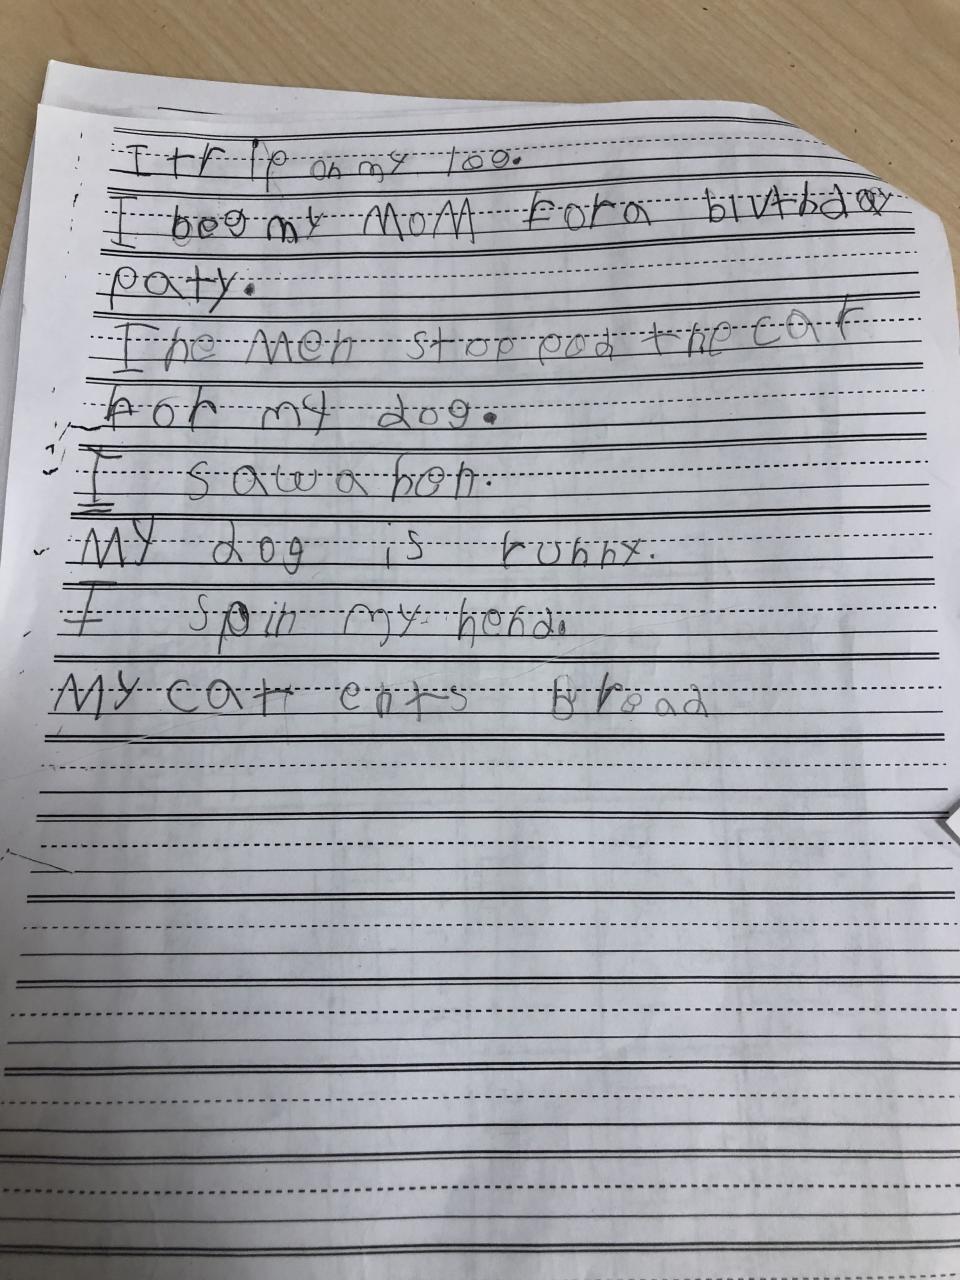 I trip on my toe.
I beg my MoM Fora birthday
paty.
The Men stopped the car
For my dog.
I saw a hen.
MY dog is runny.
I spin my hend.
MY cat eats Bread